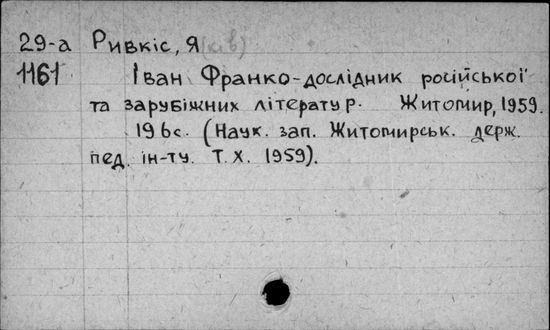 29-а Ривкіс, Я (ків)
1161 Іван Франко-дослідник російської
та зарубіжних літератур. Житомир, 1959.
196с. (Наук. зап. Житомирськ. держ.
пед. ін-ту. Т. X. 1959).